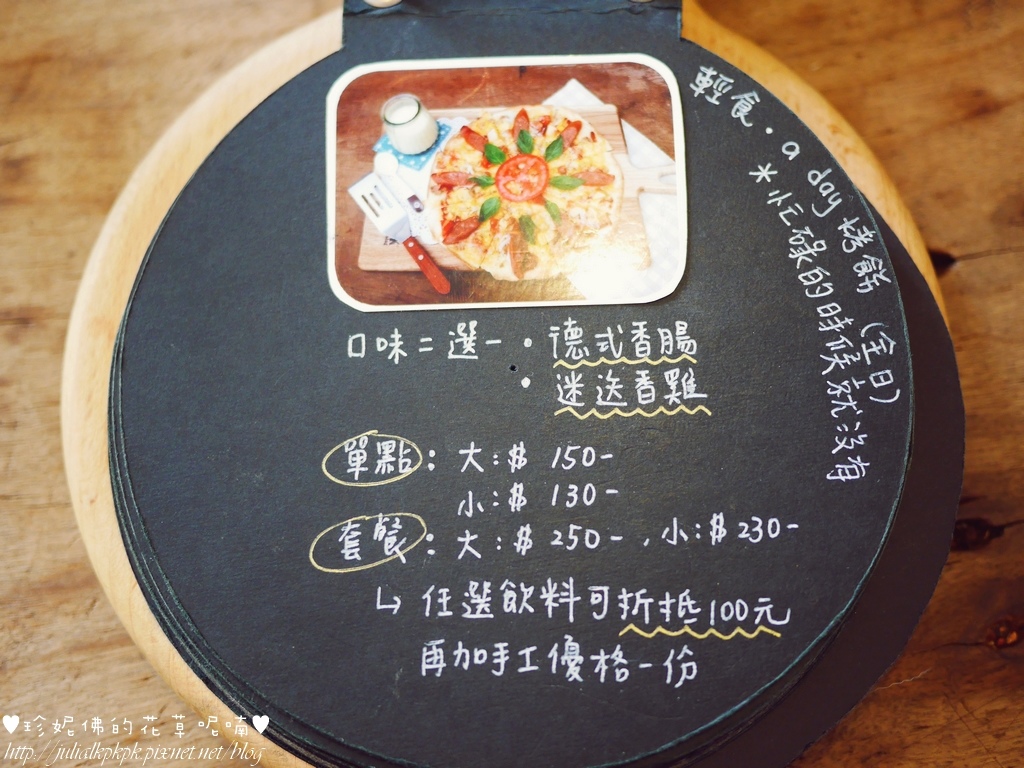 輕食・a day 烤餅 (全日)
*忙碌的時候就沒有
口味二選一・德式香腸
・迷迭香雞
單點：大：$ 150-
小：$ 130-
套餐：大：$ 250-，小：$ 230-
↳ 任選飲料可折抵100元
再加手工優格一份
♥珍妮佛的花草呢喃♥
http://julialkpkpk.pixnet.net/blog